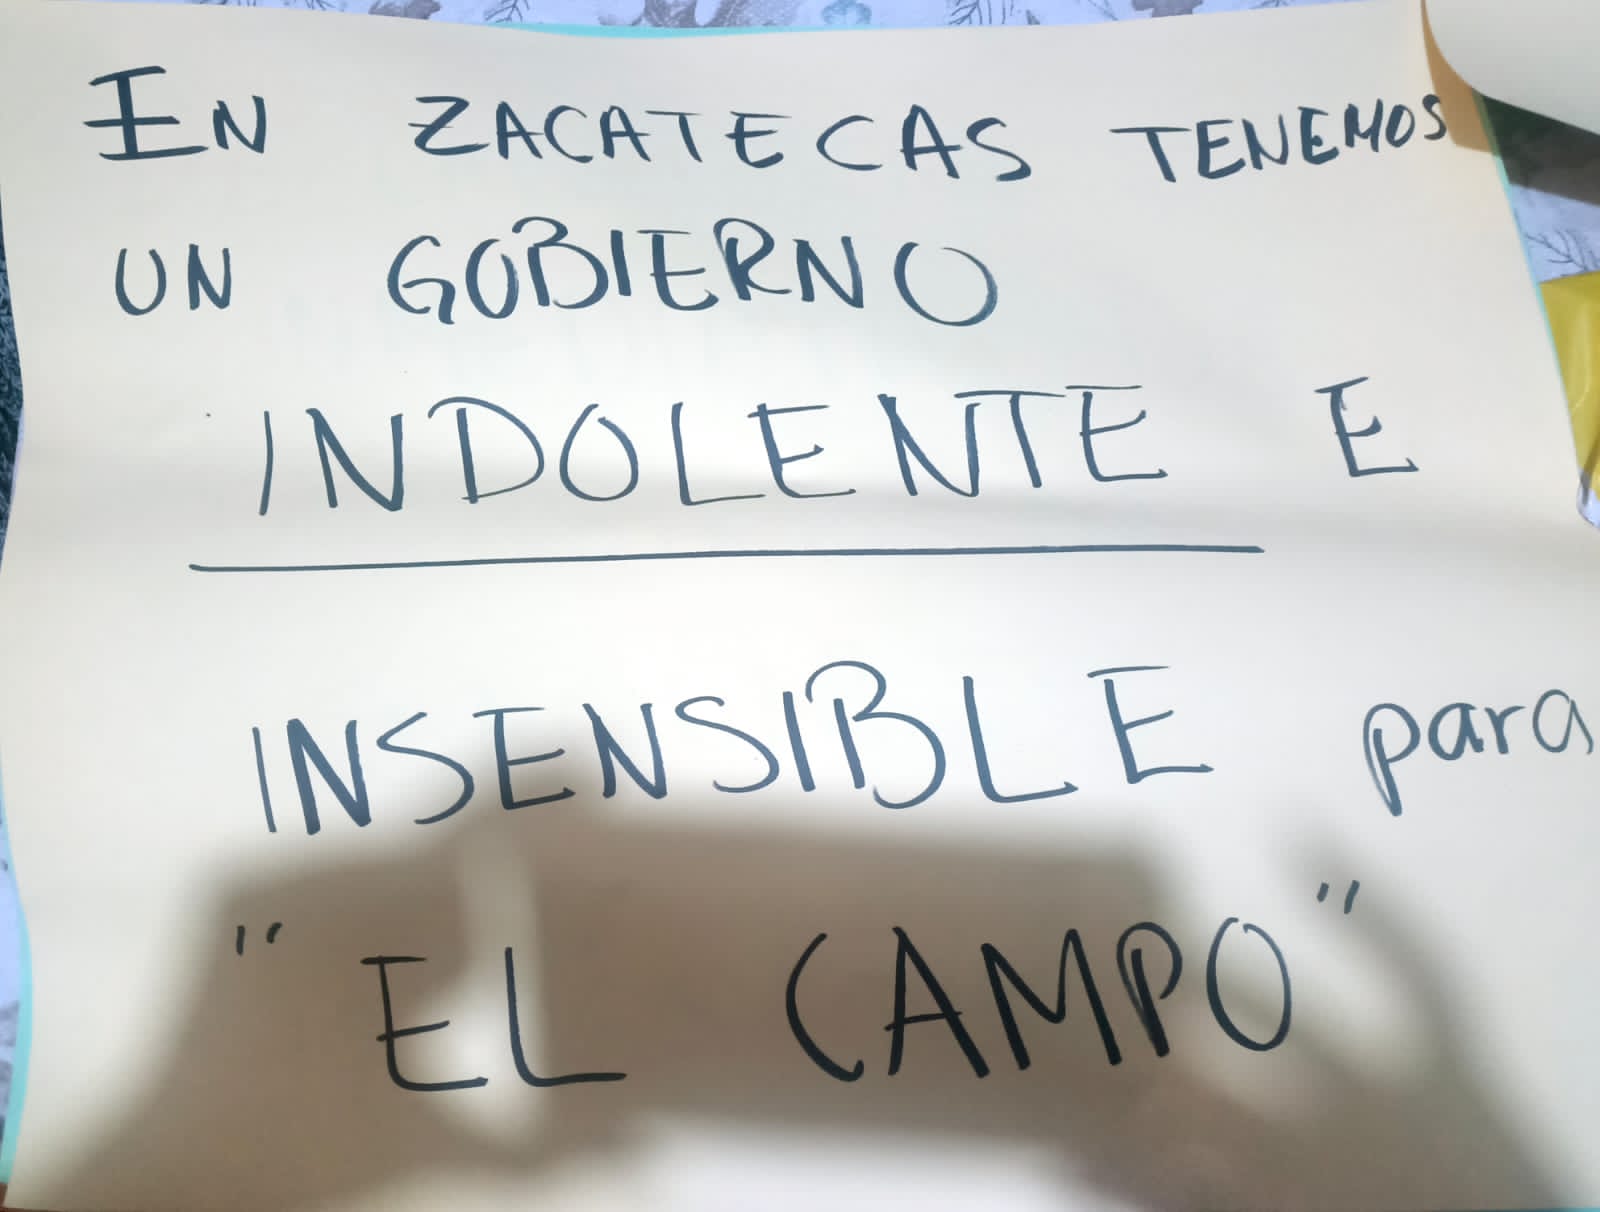 EN ZACATECAS TENEMOS
UN GOBIERNO
INDOLENTE E
INSENSIBLE para
"EL CAMPO"